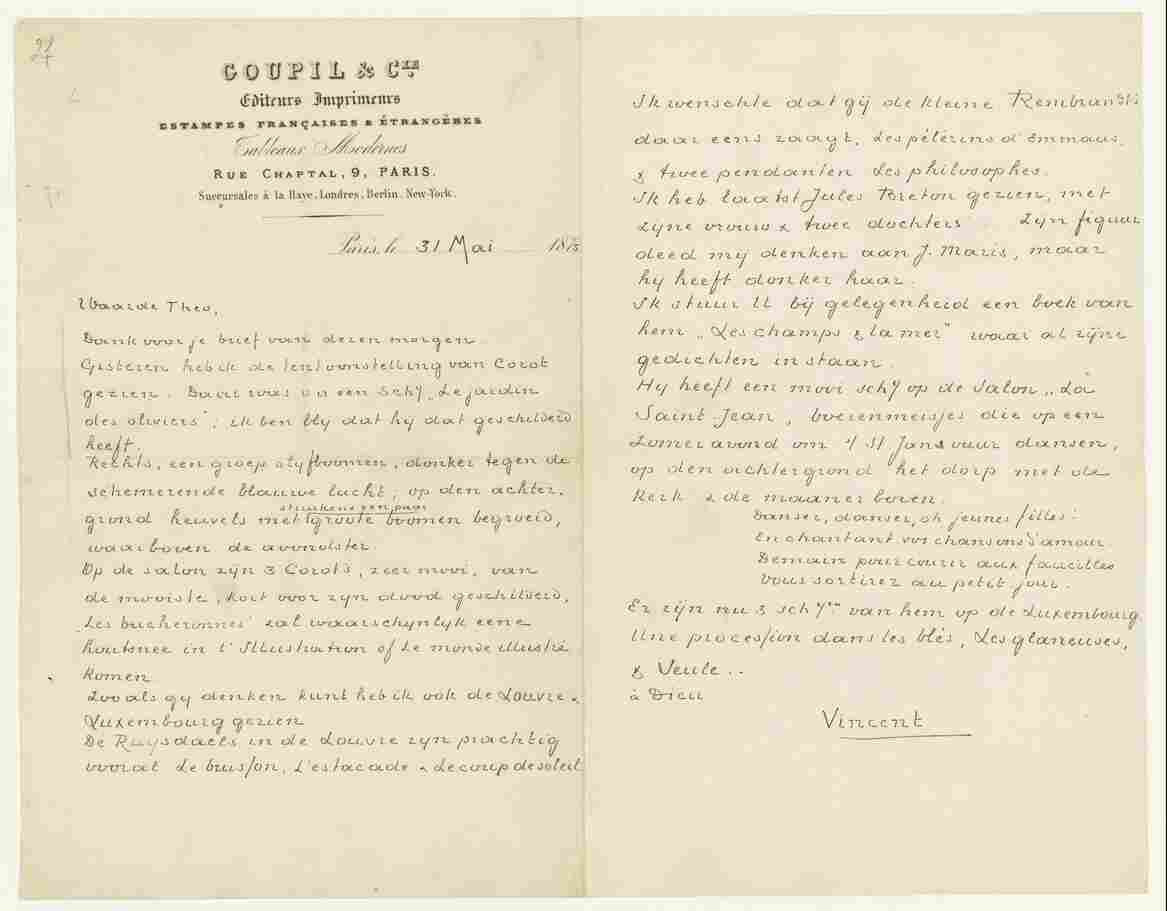 GOUPIL & CIE.
Editeurs Imprimeurs
ESTAMPES FRANÇAISES & ÉTRANGÈRES
Tableaux Modernes
RUE CHAPTAL, 9, PARIS.
Succursales à la Haye, Londres, Berlin, New-York.
Paris, le 31 Mai 1875
Waarde Theo,
Dank voor je brief van dezen morgen
Gisteren heb ik de tentoonstelling van Corot
gezien. Daar was o.a. een schij „Le jardin
des oliviers"; ik ben blij dat hij dat geschilderd
heeft.
Rechts, een groep olijfboomen, donker tegen de
schemerende blauwe lucht; op den achter-
struiken & een paar
grond heuvels met groote boomen begroeid,
waarboven de avondster.
Op de salon zijn 3 Corots, zeer mooi, van
de mooiste, kort voor zijn dood geschilderd,
„Les bucheronnes" zal waarschijnlijk eene
houtsnee in l'Illustration of Le monde illustré
komen.
Zooals gij denken kunt heb ik ook de Louvre &
Luxembourg gezien
De Ruysdaels in de Louvre zijn prachtig
vooral Le buisson, L'estacade & Le coup de soleil
Ik wenschte dat gij de kleine Rembrandts
daar eens zaagt, Les pélerins d'Emmaus,
& twee pendanten Les philosophes.
Ik heb laatst Jules Breton gezien, met
zijne vrouw & twee dochters Zijn figuur
deed mij denken aan J. Maris, maar
hij heeft donker haar.
Ik stuur U bij gelegenheid een boek van
hem „Les champs & la mer" waar al zijne
gedichten in staan.
Hij heeft een mooi schij op de Salon „La
Saint-Jean, boerenmeisjes die op een
Zomeravond om 't St Jans vuur dansen,
op den achtergrond het dorp met de
kerk & de maan er boven.
Danser, danser, oh jeunes filles!
En chantant vos chansons d'amour
Demain pour courir aux faucilles
Vous sortirez au petit jour.
Er zijn nu 3 schijen van hem op de Luxembourg.
Une procession dans les blés, Les glaneuses,
& Seule..
à Dieu
Vincent